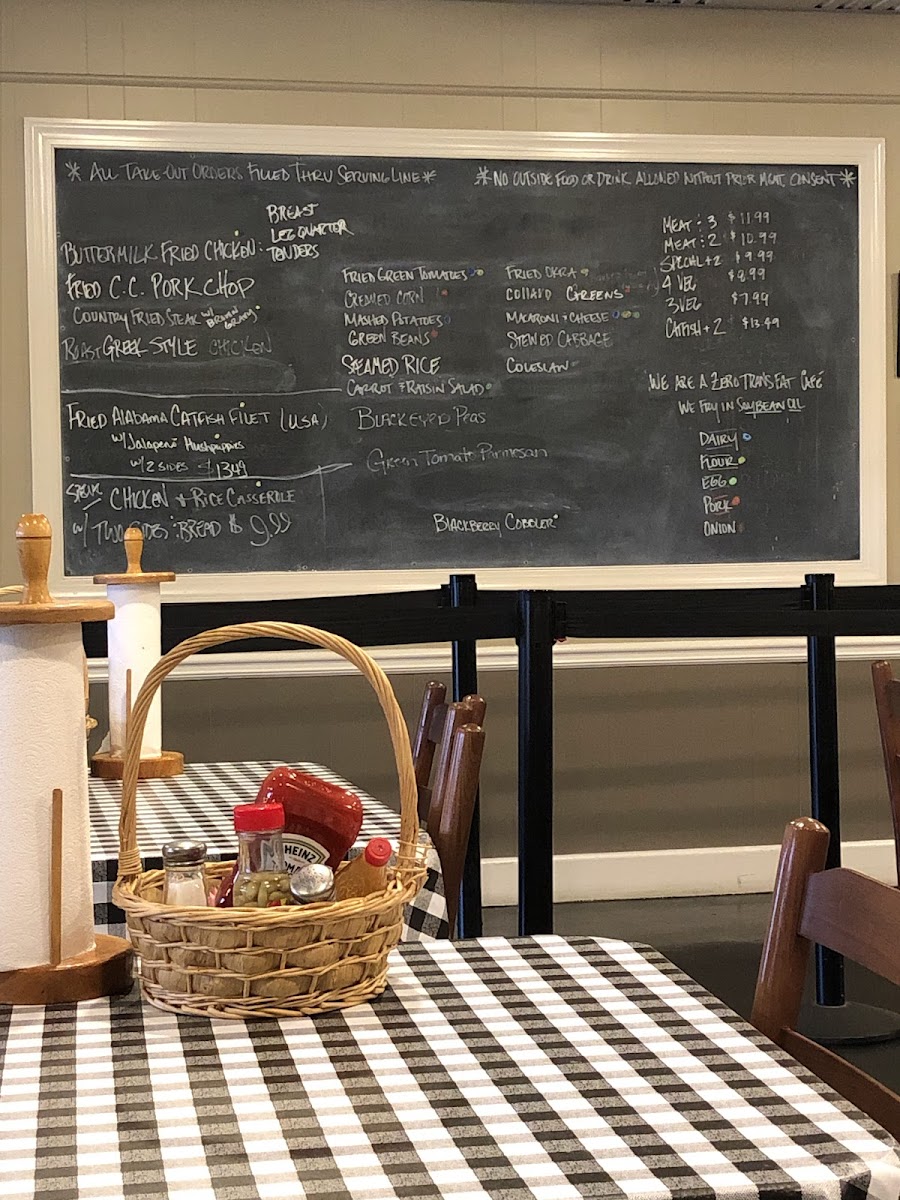 * ALL TAKE-OUT ORDERS FILLED THRU SERVING LINE *
* NO OUTSIDE FOOD OR DRINK ALLOWED WITHOUT PRIOR MGMT. CONSENT *
BREAST
LEG QUARTER
BUTTERMILK FRIED CHICKEN: TENDERS
FRIED C.C. PORK CHOP
COUNTRY FRIED STEAK W/ BROWN GRAVY
ROAST GREEK STYLE CHICKEN
FRIED ALABAMA CATFISH FILET (USA)
W/ Jalapeño Hushpuppies
W/ 2 SIDES $13.49
SPECIAL CHICKEN & RICE CASSEROLE
W/ TWO SIDES: BREAD $ 9.99
FRIED GREEN TOMATOES
CREAMED CORN
MASHED POTATOES
GREEN BEANS
STEAMED RICE
CARROT & RAISIN SALAD
BLACKEYED PEAS
Green Tomato Parmesan
BLACKBERRY COBBLER
FRIED OKRA
COLLARD GREENS
MACARONI & CHEESE
STEWED CABBAGE
COLESLAW
MEAT: 3 $11.99
MEAT: 2 $10.99
SPECIAL + 2 $9.99
4 VEG $8.99
3 VEG $7.99
CATFISH + 2 $13.49
WE ARE A ZERO TRANS FAT CAFÉ
WE FRY IN SOYBEAN OIL
DAIRY
FLOUR
EGG
PORK
ONION
HEINZ